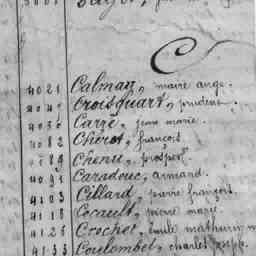 C
4021 Calmau, marie ange.
4040 Croisquart, prudent.
4050 Carré, jean marie.
4082 Chérot, françois.
4089 Chenu, prosper.
4091 Caradouc, armand.
4103 Cillard, pierre françois.
4118 Cocault, pierre marie.
4125 Crochet, emile mathurin
4133 Coulombel, charles